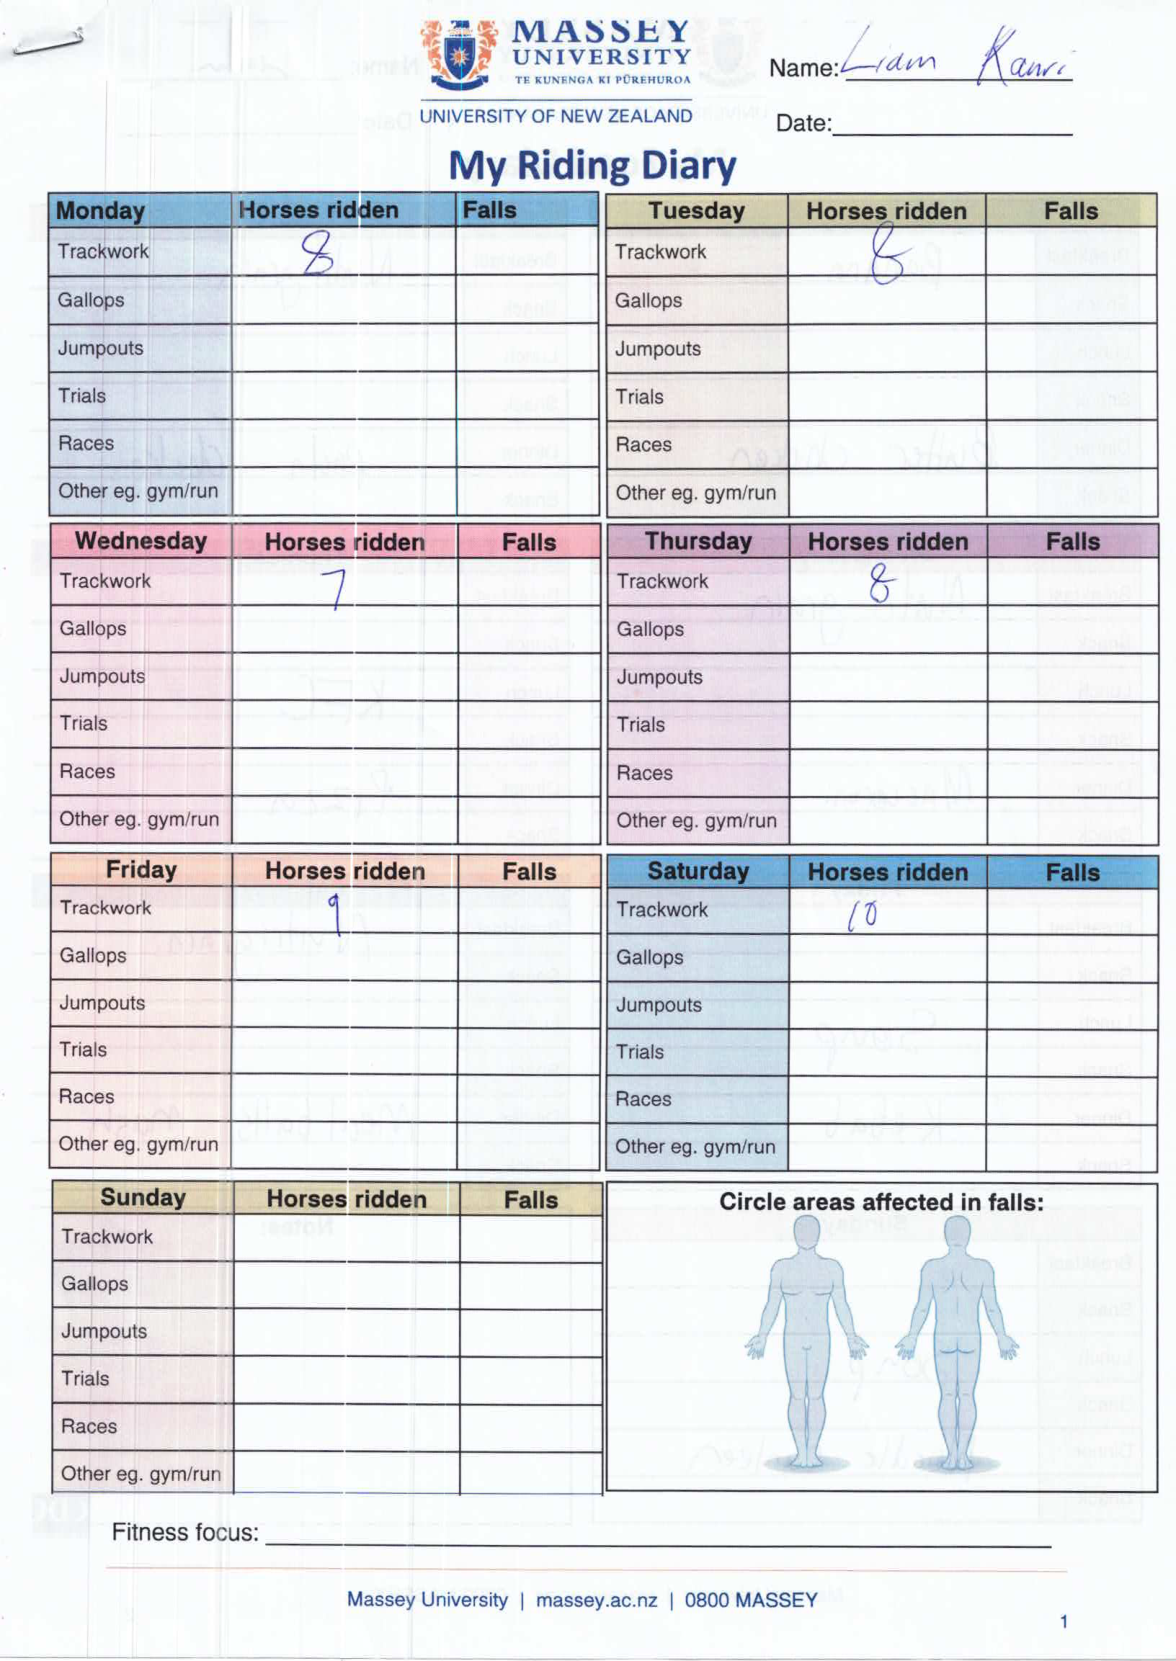 MASSEY
UNIVERSITY
TE KUNENGA KI PŪREHUROA
UNIVERSITY OF NEW ZEALAND
Name: Liam
Date:
My Riding Diary
Monday Horses ridden Falls
Trackwork 8
Gallops
Jumpouts
Trials
Races
Other eg. gym/run
Tuesday Horses ridden Falls
Trackwork 8
Gallops
Jumpouts
Trials
Races
Other eg. gym/run
Wednesday Horses ridden Falls
Trackwork 7
Gallops
Jumpouts
Trials
Races
Other eg. gym/run
Thursday Horses ridden Falls
Trackwork 8
Gallops
Jumpouts
Trials
Races
Other eg. gym/run
Friday Horses ridden Falls
Trackwork 9
Gallops
Jumpouts
Trials
Races
Other eg. gym/run
Saturday Horses ridden Falls
Trackwork 10
Gallops
Jumpouts
Trials
Races
Other eg. gym/run
Sunday Horses ridden Falls
Trackwork
Gallops
Jumpouts
Trials
Races
Other eg. gym/run
Circle areas affected in falls:
Fitness focus:
Massey University | massey.ac.nz | 0800 MASSEY
1